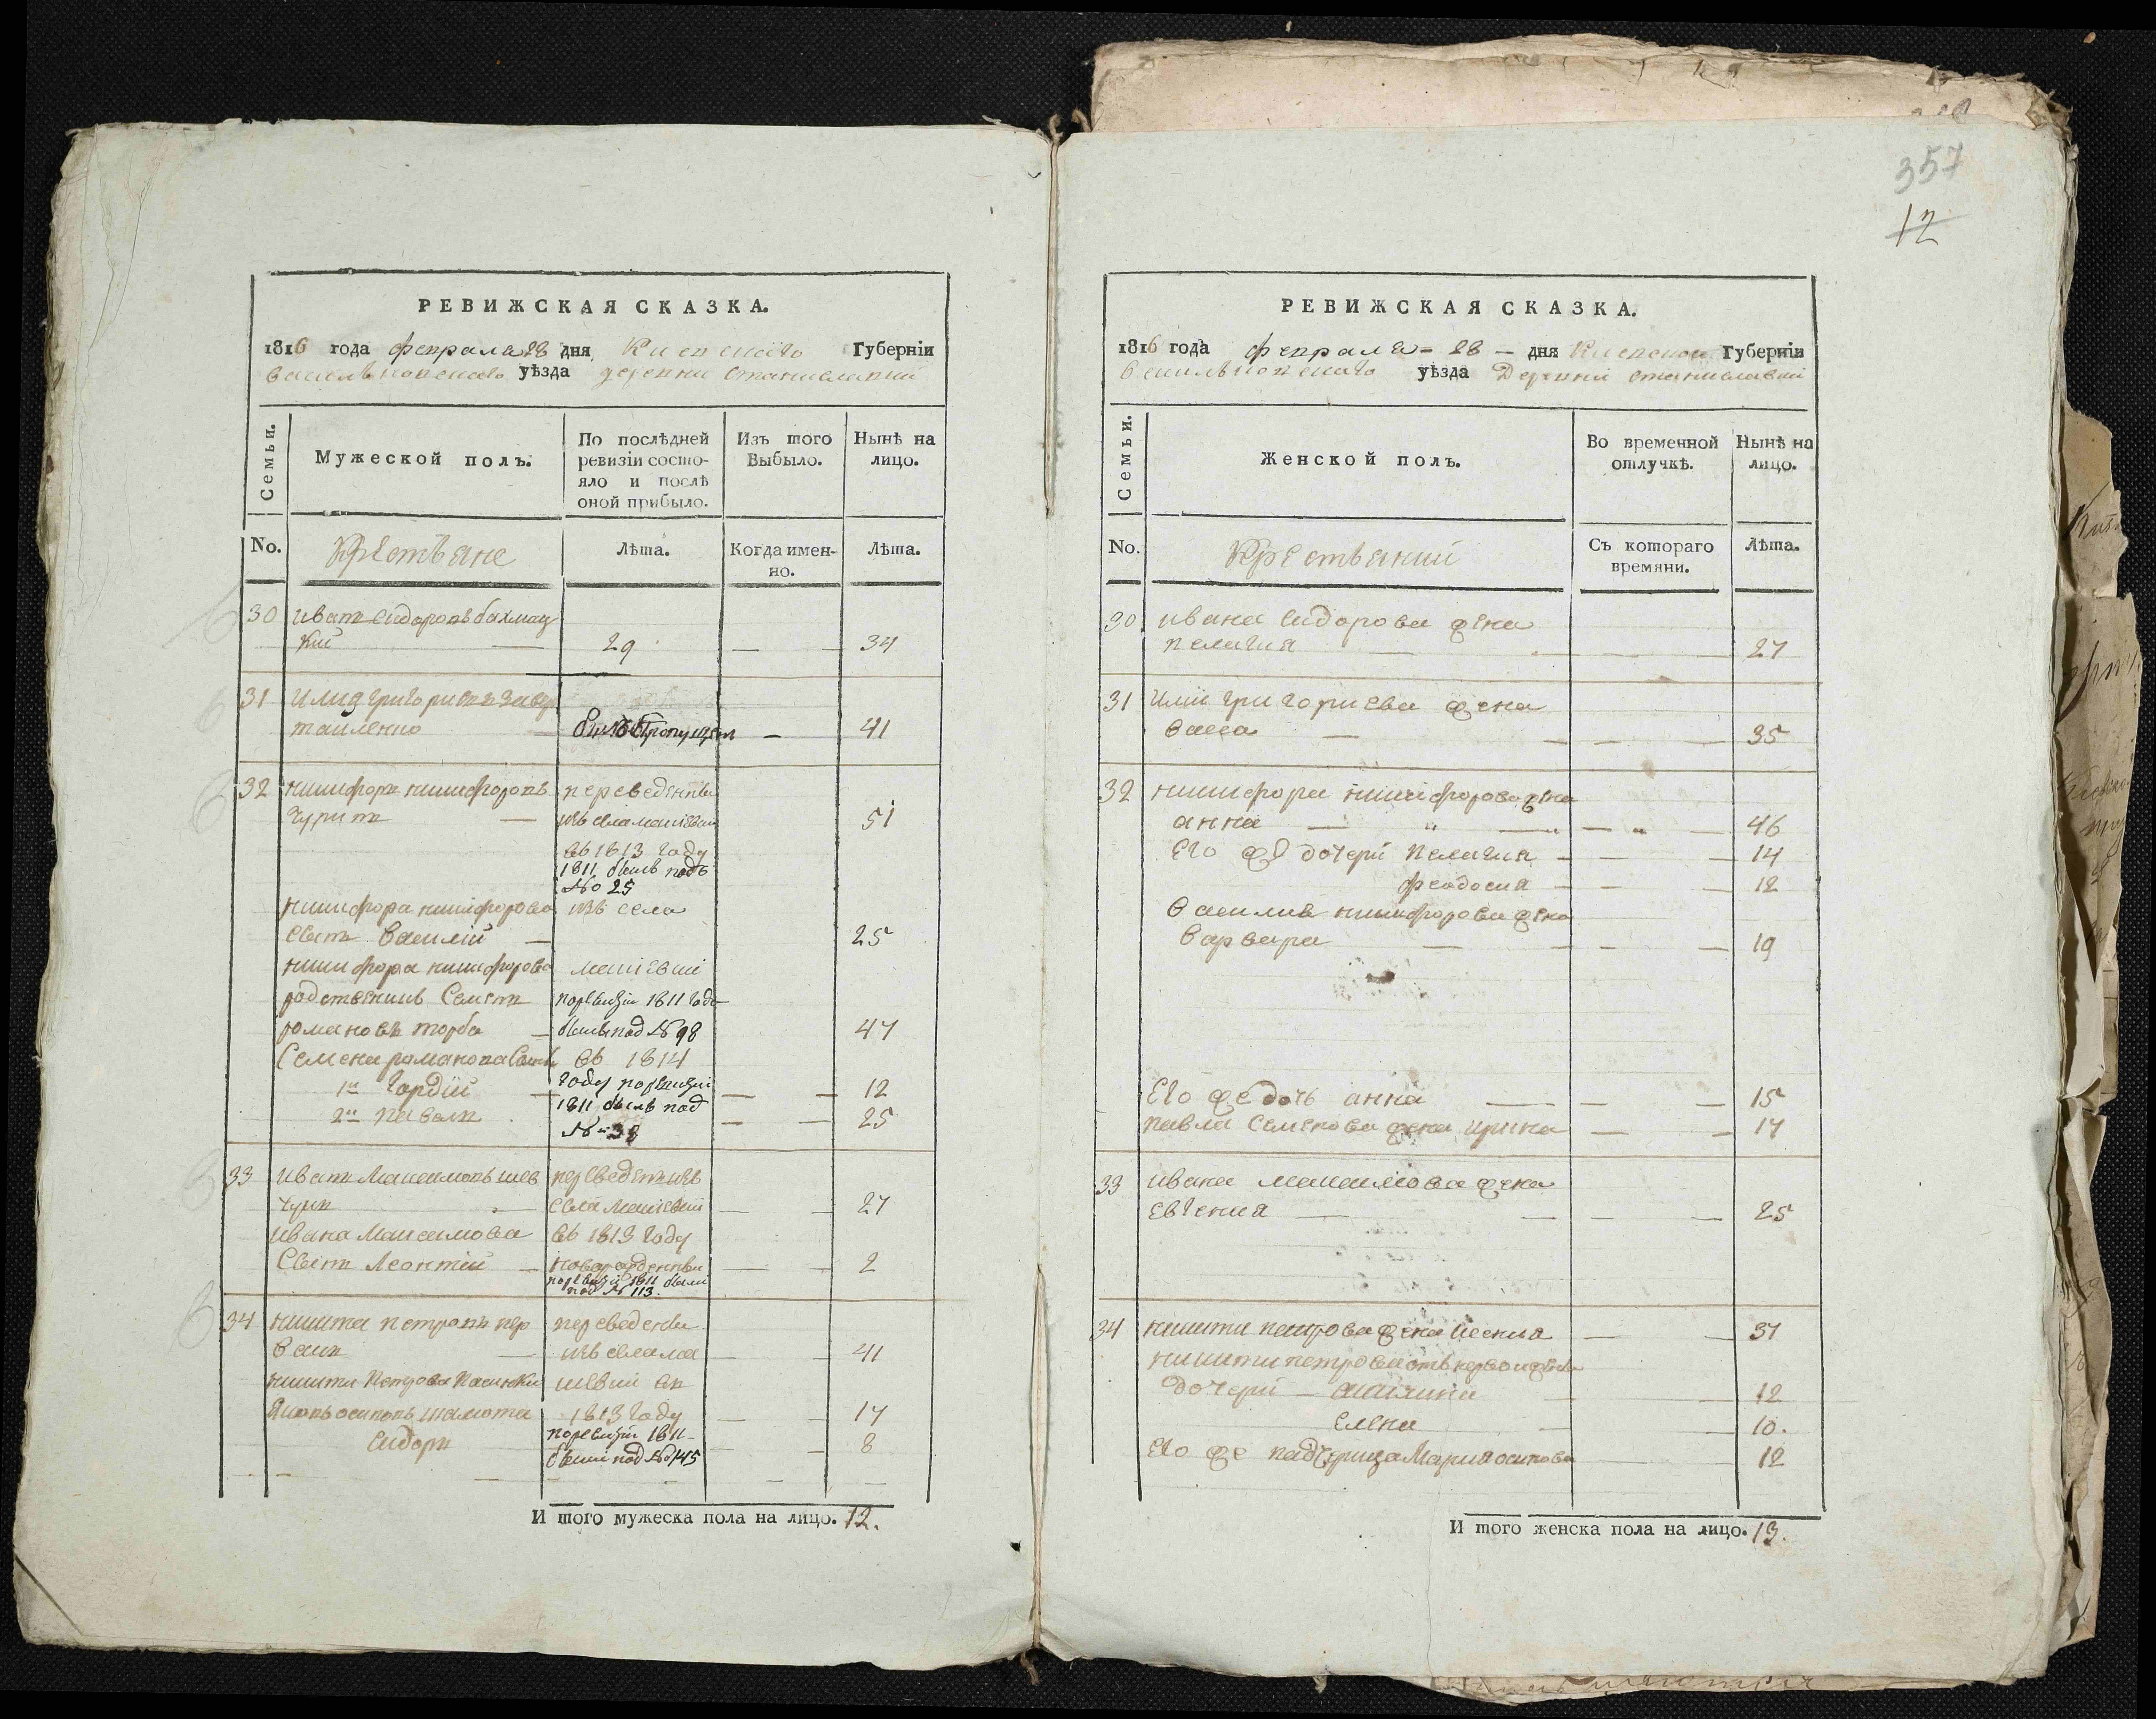 357
12
РЕВИЖСКАЯ СКАЗКА.
1816 года февраля 28 дня Киевскаго Губернїи
васильковскаго уѣзда деревни Станиславки
Семьи.
Мужеской полъ.
По послѣдней
ревизїи состо-
яло и послѣ
оной прибыло.
Изъ того
Выбыло.
Нынѣ на
лицо.
No.
Крестьяне
Лѣта.
Когда имен-
но.
Лѣта.
30 иванъ Сидоровъ бахмац
кий — 29 — — 34
31 илия григориевъ
— — 41
32 никифоръ никифоровъ переведенны
— изъ села 51
въ 1813 году
1811 былъ подъ
№ 25
никифора никифорова изъ села
сынъ василий — 25
никифора никифорова
родственникъ Семенъ по ревизии 1811 года
романовъ торба — былъ под № 98 47
Семена романова въ 1814
году по ревизии
1й гордий — — — 12
1811 былъ под
2й павелъ — — 25
№ 38
33 иванъ Максимовъ шев переведенъ изъ
чукъ — села — — 27
ивана Максимова въ 1813 году
Сынъ Леонтий — новорожденны — — 2
по ревизии 1811 были
под № 113.
34 никита петровъ пер переведены
— изъ села — — 41
никиты Петрова пасынки въ
Яковъ осиповъ 1813 году — — 17
Сидоръ по ревизии 1811 — 8
были под № 145
И того мужеска пола на лицо. 12.
РЕВИЖСКАЯ СКАЗКА.
1816 года февраля - 28 - дня Киевской Губернїи
васильковскаго уѣзда Деревни Станиславки
Семьи.
Женской полъ.
Во временной
отлучкѣ.
Нынѣ на
лицо.
No.
Крестьянки
Съ котораго
времяни.
Лѣта.
30 ивана Сидорова жена
пелагия — — 27
31 илии григориева жена
васса — — 35
32 никифора никифорова жена
анна — — 46
Его же дочери пелагия — — 14
феодосия — — 12
василия никифорова жена
варвара — — 19
Его же дочь анна — — 15
павла Семенова жена ирина — — 17
33 ивана максимова жена
Евгения — — 25
34 никиты петрова жена — — 37
никиты петрова отъ первой жены
дочери — — 12
Елена — 10.
Его же падчерица Мария осипова — 12
И того женска пола на лицо. 13.